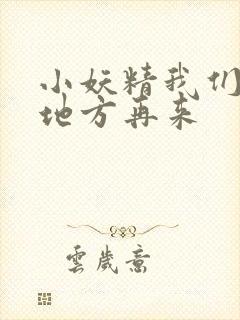 小妖精我们
地方再来
雲歲意